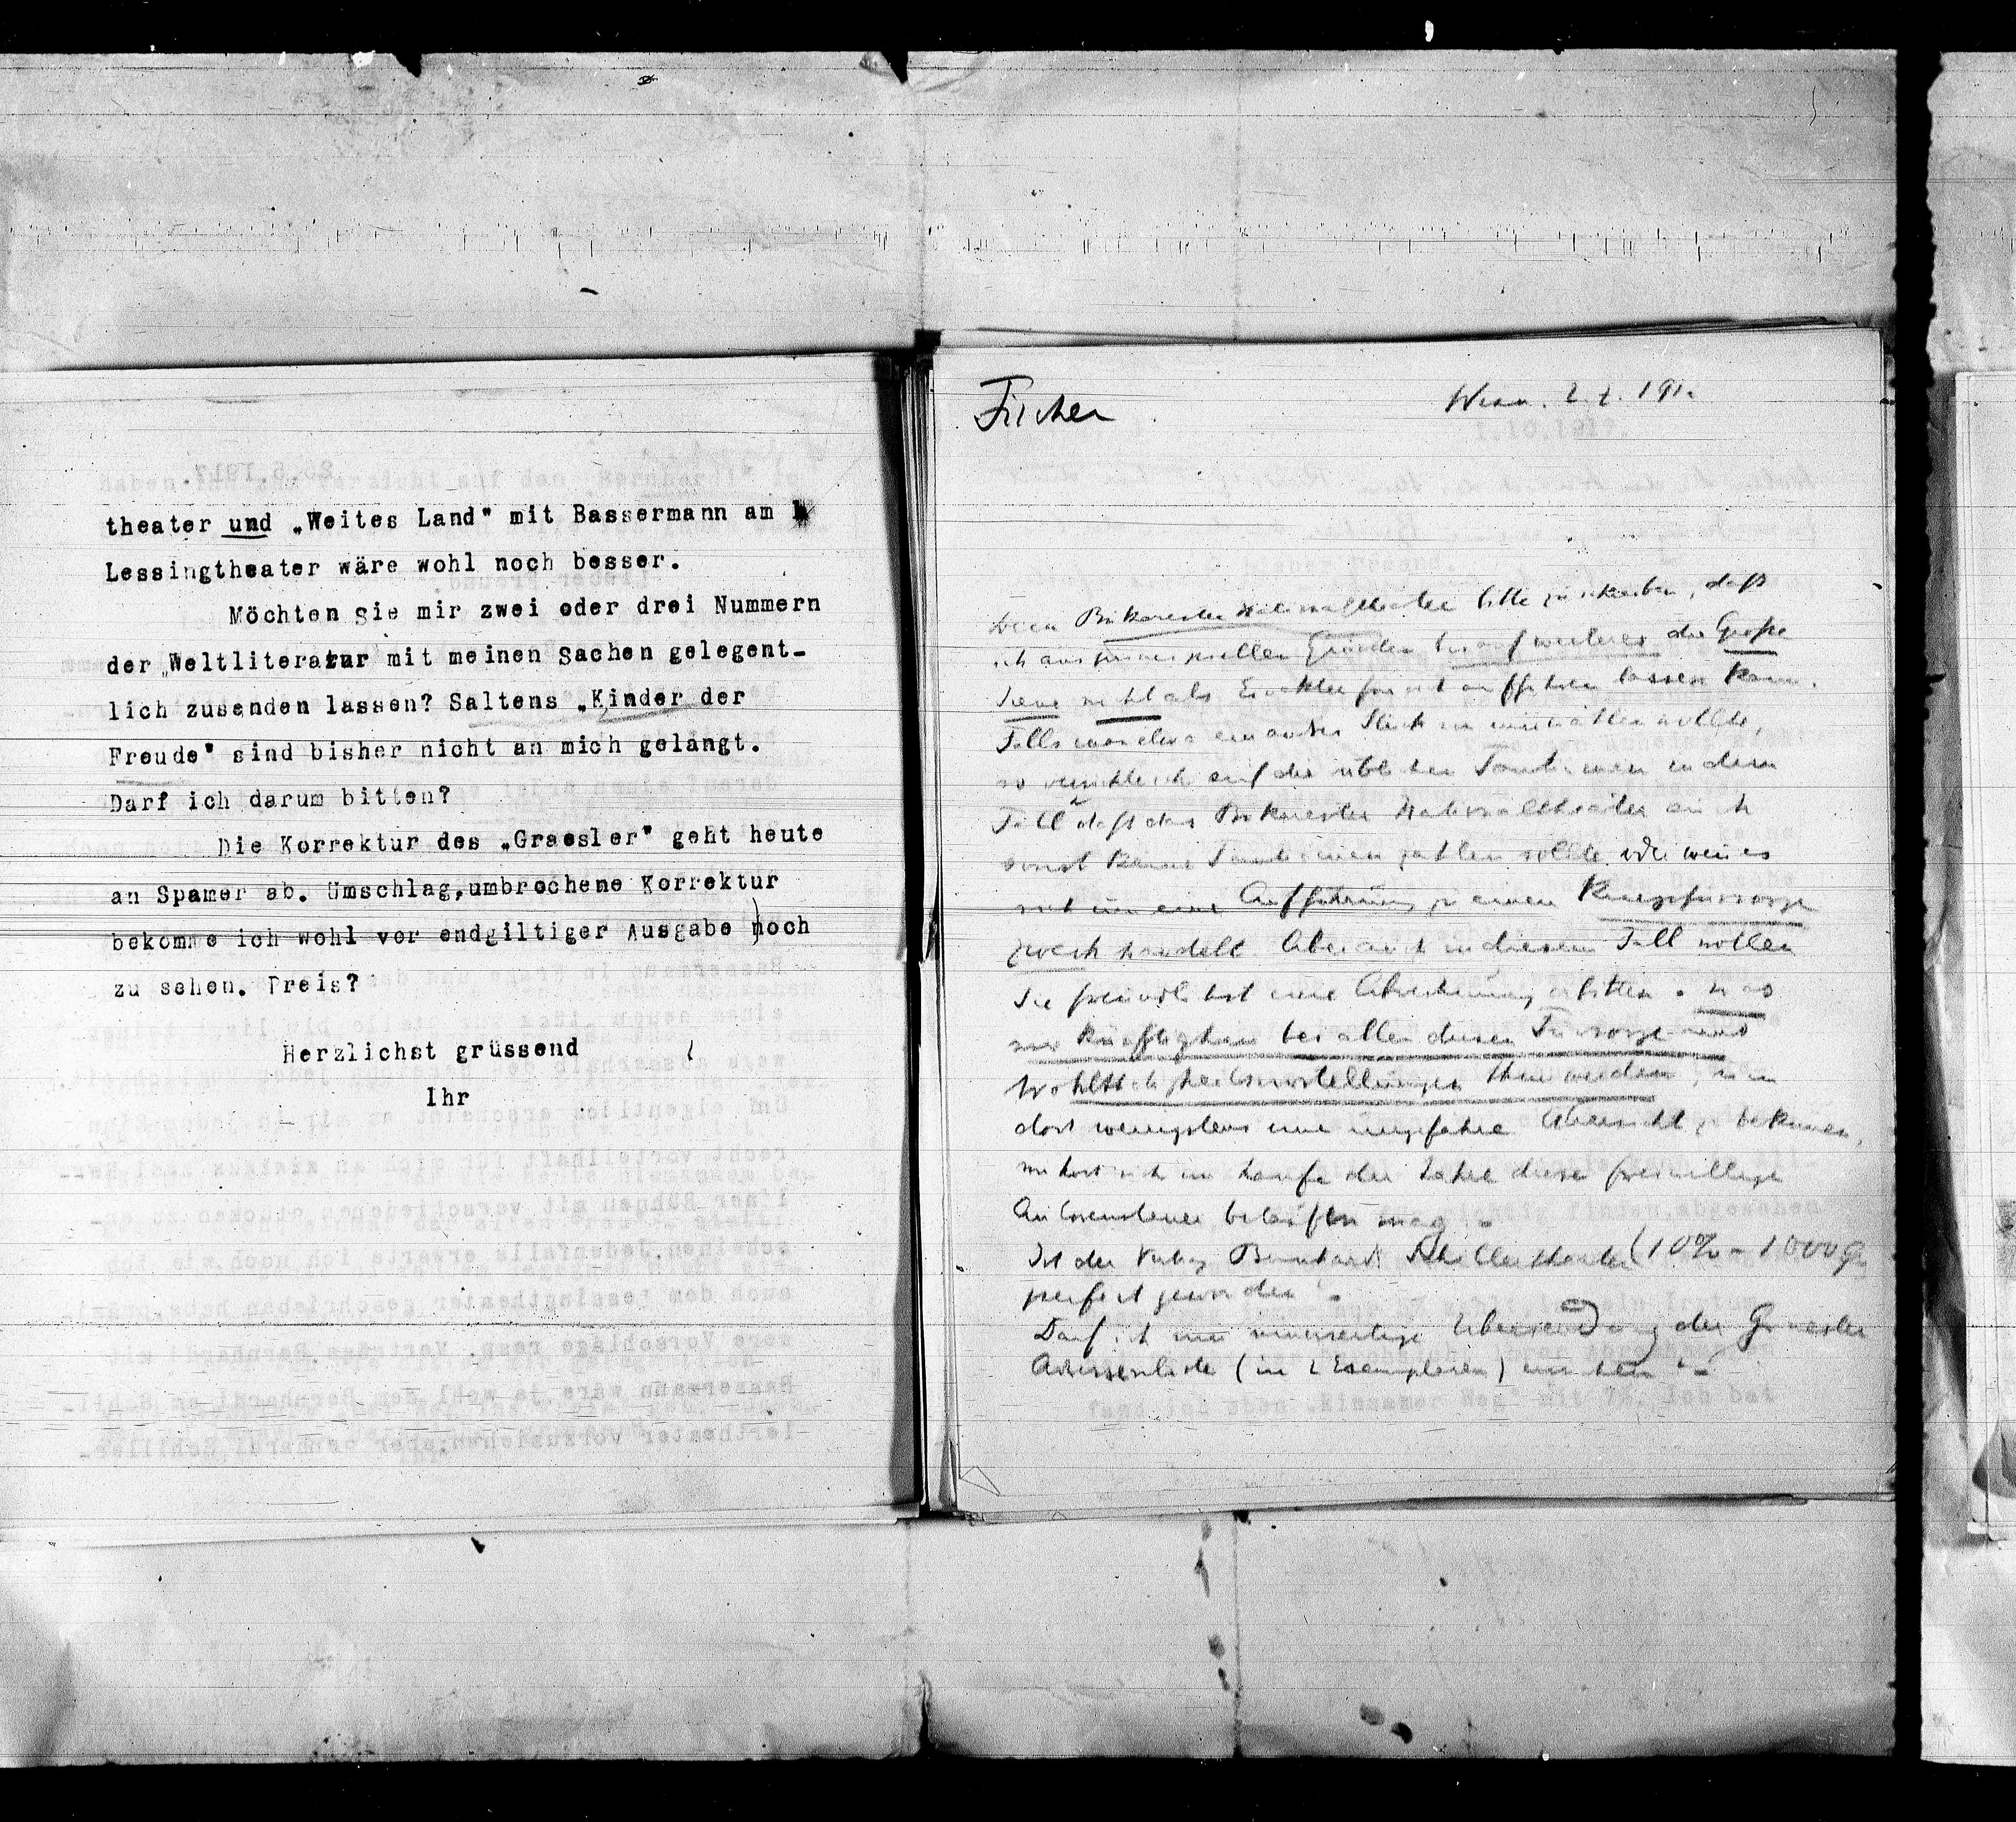 theater und „Weites Land" mit Bassermann am
Lessingtheater wäre wohl noch besser.
Möchten Sie mir zwei oder drei Nummern
der „Weltliteratur mit meinen Sachen gelegent-
lich zusenden lassen? Saltens „Kinder der
Freude" sind bisher nicht an mich gelangt.
Darf ich darum bitten?
Die Korrektur des „Graesler" geht heute
an Spamer ab. Umschlag,umbrochene Korrektur
bekomme ich wohl vor endgiltiger Ausgabe noch
zu sehen. Preis?
Herzlichst grüssend
Ihr
Fischer
Wien.
Bukarester Nationaltheater bitte zu schreiben, daß
ich aus prinzipiellen Gründen bis auf weiteres die Große
Scene nicht als Einakter für sich aufführen lassen kann.
Falls man etwa ein andres Stück von mir wollte,
so verzichte ich auf die üblichen Tantiemen in dem
Fall daß das Bukarester Nationaltheater auch
sonst keine Tantiemen zahlen sollte oder wenn es
sich um eine Aufführung zu einem Kriegsfürsorge
zweck handelt. Aber auch in diesem Fall wollen
Sie freundlichst eine Abrechnung erbitten. was
wir künftighin bei allen diesen Fürsorge und
Wohltätigkeitsvorstellungen thun werden, um
doch wenigstens eine ungefähre Übersicht zu bekommen,
wie hoch sich im Laufe der Jahre diese freiwillige
Autorensteuer belaufen mag.-
Ist der Vertrag Bernhardi Schillertheater (10% - 1000
perfect geworden?
Darf ich um Übersendung der Graesler
Adressenliste (in 2 Exemplaren)